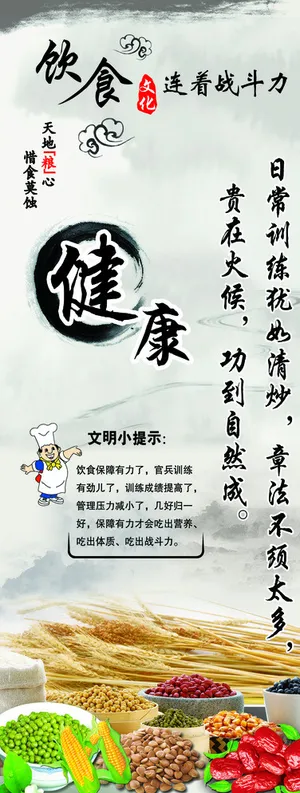 饮食文化连着战斗力
天地「粮」心
惜食莫蚀
日常训练犹如清炒，章法不须太多，
贵在火候，功到自然成。
健康
文明小提示：
饮食保障有力了，官兵训练
有劲儿了，训练成绩提高了，
管理压力减小了，几好归一
好，保障有力才会吃出营养、
吃出体质、吃出战斗力。